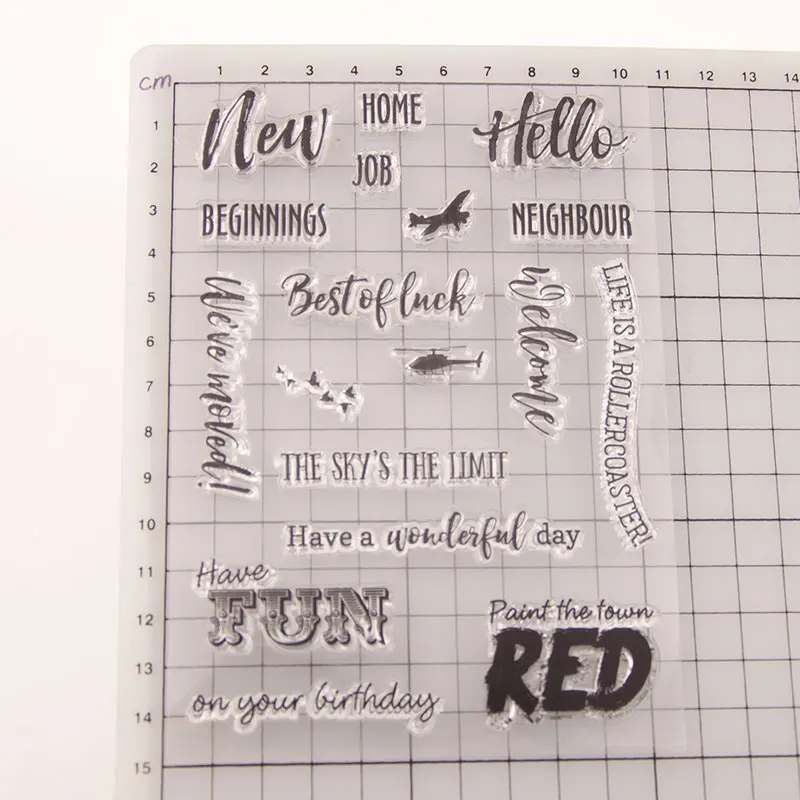 1 2 3 4 5 6 7 8 9 10 11 12 13 14
cm
1
2
3
4
5
6
7
8
9
10
11
12
13
14
15
New
HOME
Hello
JOB
BEGINNINGS
NEIGHBOUR
We've moved!
Best of luck
Welcome
LIFE IS A ROLLERCOASTER!
THE SKY'S THE LIMIT
Have a wonderful day
Have
FUN
on your birthday
Paint the town
RED